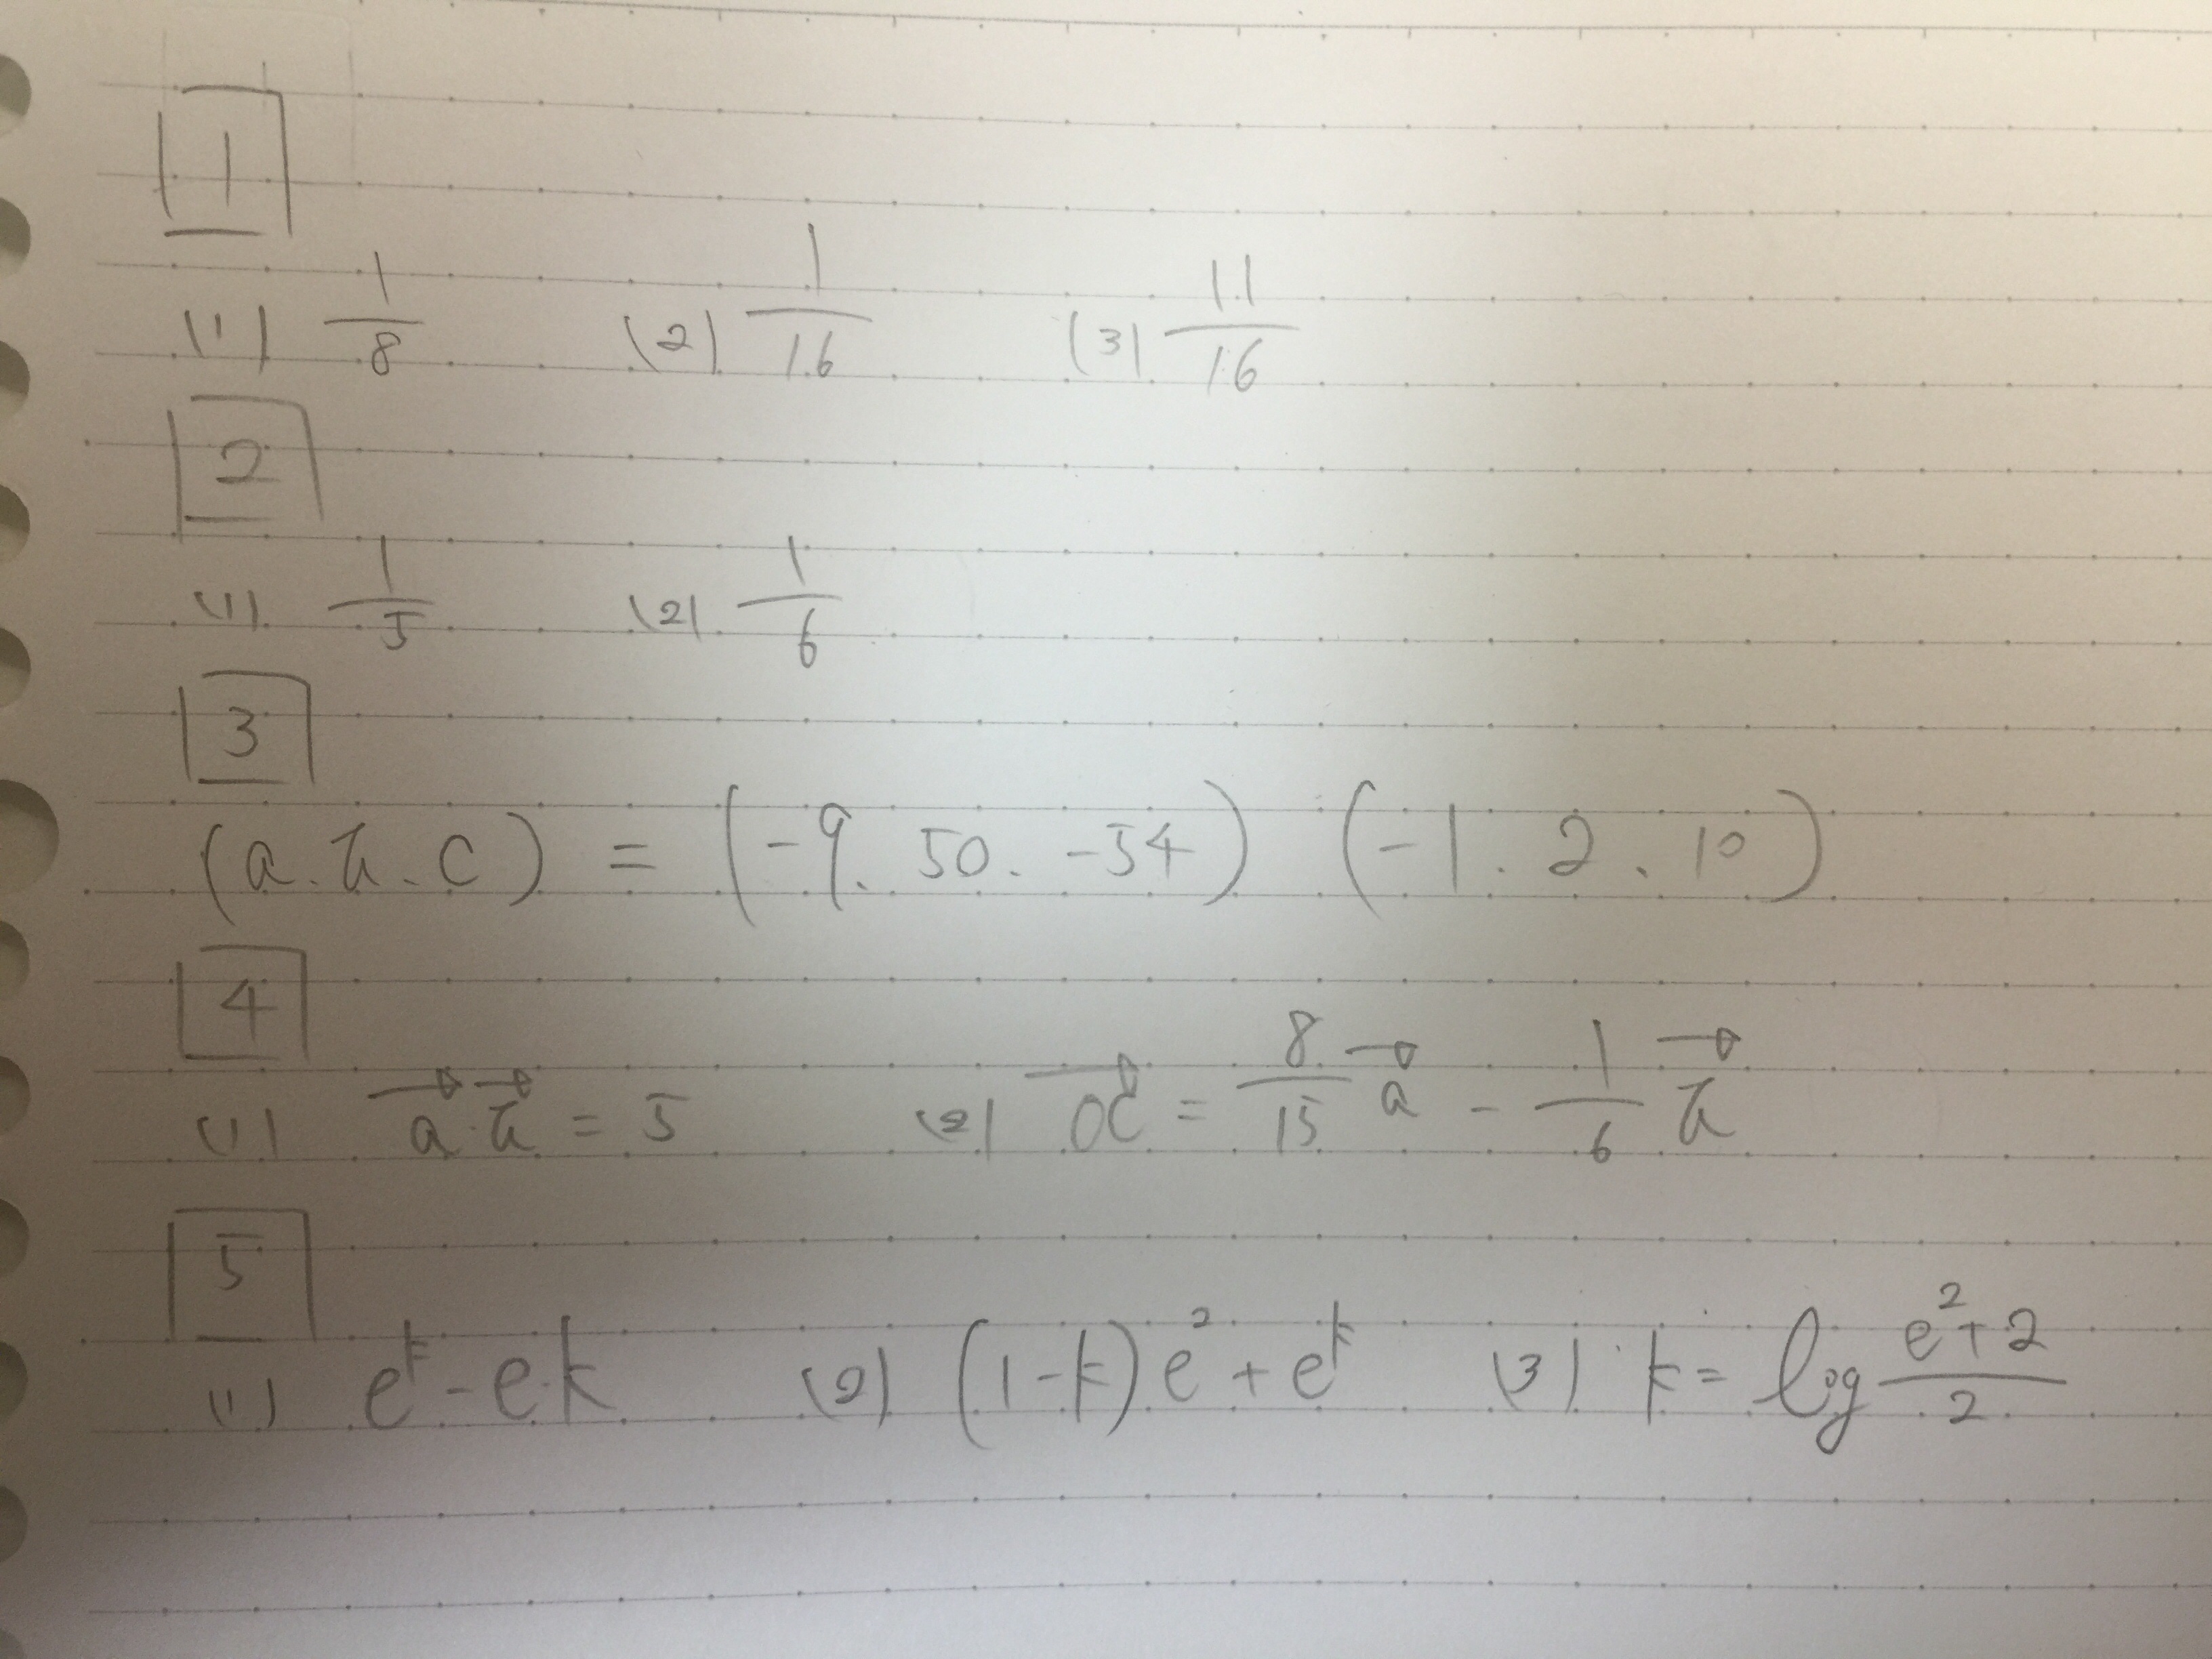 1
(1) 1/8 (2) 1/16 (3) 11/16
2
(1) 1/5 (2) 1/6
3
(a.b.c) = (-9. 50. -54) (-1. 2. 10)
4
(1) a⃗・b⃗ = 5 (2) OC⃗ = 8/15 a⃗ - 1/6 b⃗
5
(1) e^k - ek (2) (1-k)e² + e^k (3) k = log (e²+2)/2